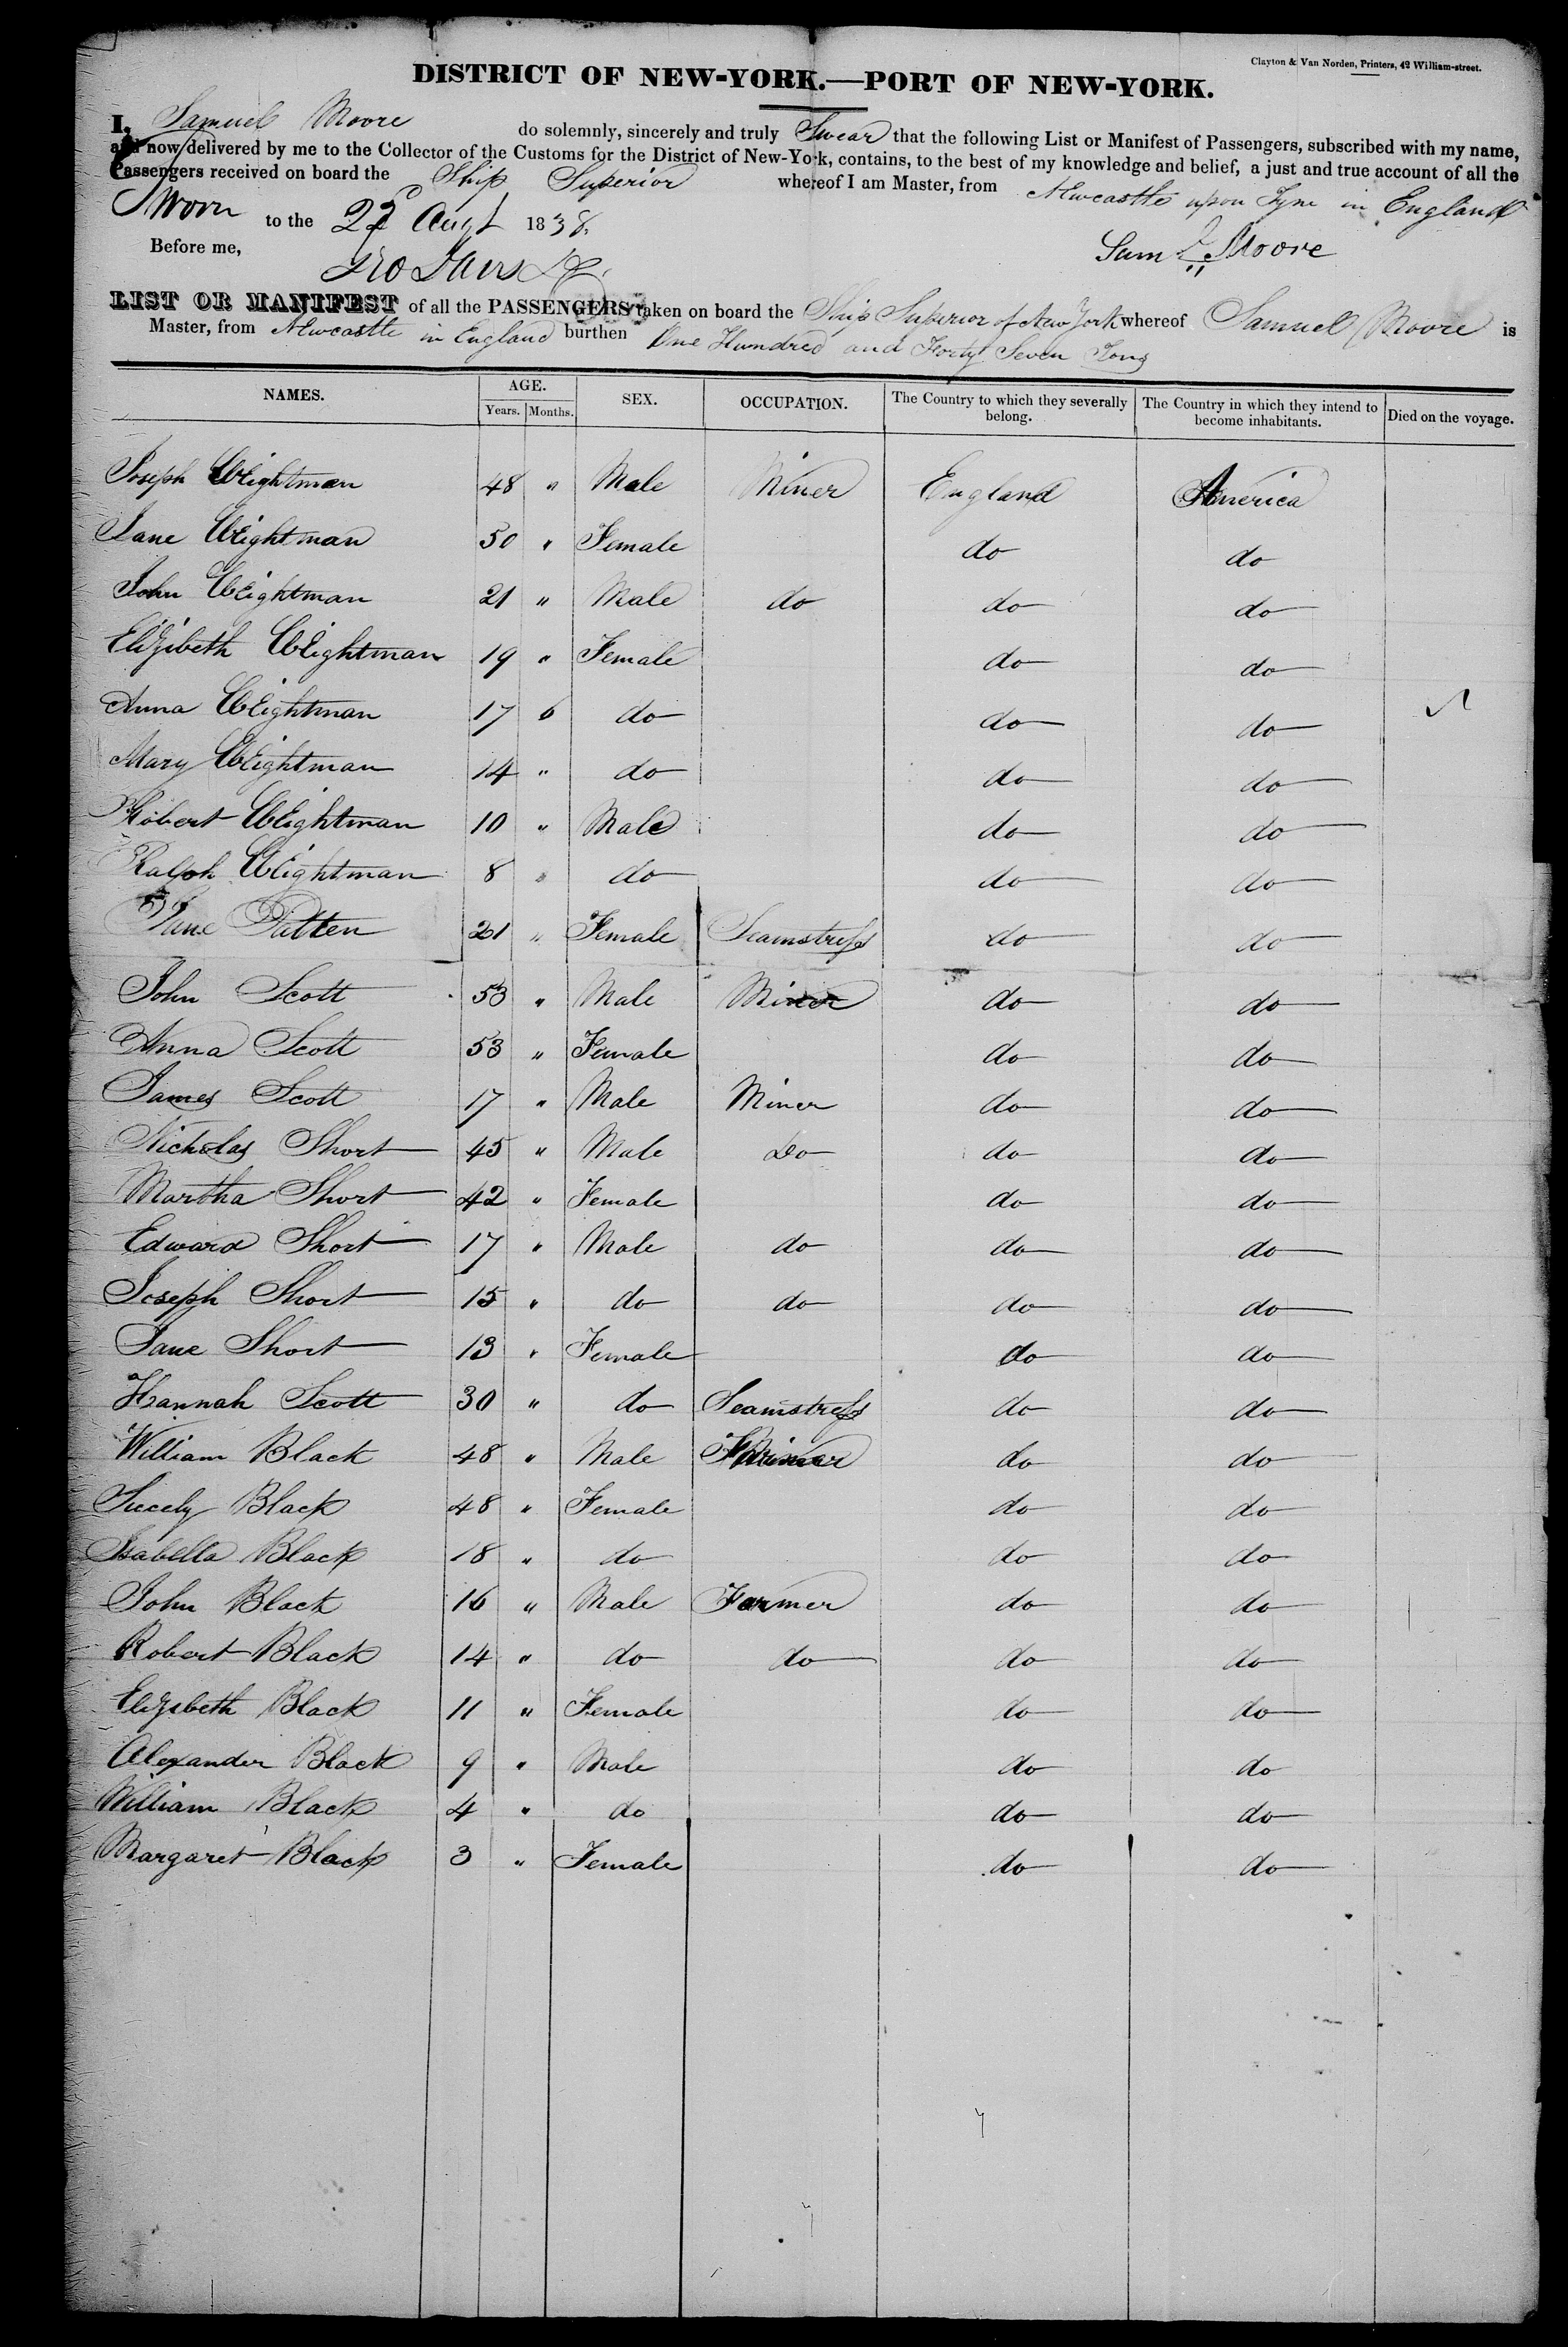 Clayton & Van Norden, Printers, 42 William-street.
DISTRICT OF NEW-YORK.—PORT OF NEW-YORK.
I, Samuel Moore do solemnly, sincerely and truly Swear that the following List or Manifest of Passengers, subscribed with my name,
and now delivered by me to the Collector of the Customs for the District of New-York, contains, to the best of my knowledge and belief, a just and true account of all the
Passengers received on board the Ship Superior whereof I am Master, from Newcastle upon Tyne in England
Sworn to the 22d Augt 1838.
Before me, Saml Moore
LIST OR MANIFEST of all the PASSENGERS taken on board the Ship Superior of New York whereof Samuel Moore is
Master, from Newcastle in England burthen One Hundred and Forty Seven Tons
NAMES. AGE. Years. Months. SEX. OCCUPATION. The Country to which they severally belong. The Country in which they intend to become inhabitants. Died on the voyage.
Joseph Weightman 48 " Male Miner England America
Jane Weightman 50 " Female do do
John Weightman 21 " Male do do do
Elizibeth Weightman 19 " Female do do
Anna Weightman 17 6 do do do
Mary Weightman 14 " do do do
Robert Weightman 10 " Male do do
Ralph Weightman 8 " do do do
Jane Patten 21 " Female Seamstress do do
John Scott 53 " Male Miner do do
Anna Scott 53 " Female do do
James Scott 17 " Male Miner do do
Nicholas Short 45 " Male Do do do
Martha Short 42 " Female do do
Edward Short 17 " Male do do do
Joseph Short 15 " do do do do
Jane Short 13 " Female do do
Hannah Scott 30 " do Seamstress do do
William Black 48 " Male do do
Sucely Black 48 " Female do do
Isabella Black 18 " do do do
John Black 16 " Male Farmer do do
Robert Black 14 " do do do do
Elizabeth Black 11 " Female do do
Alexander Black 9 " Male do do
William Black 4 " do do do
Margaret Black 3 " Female do do